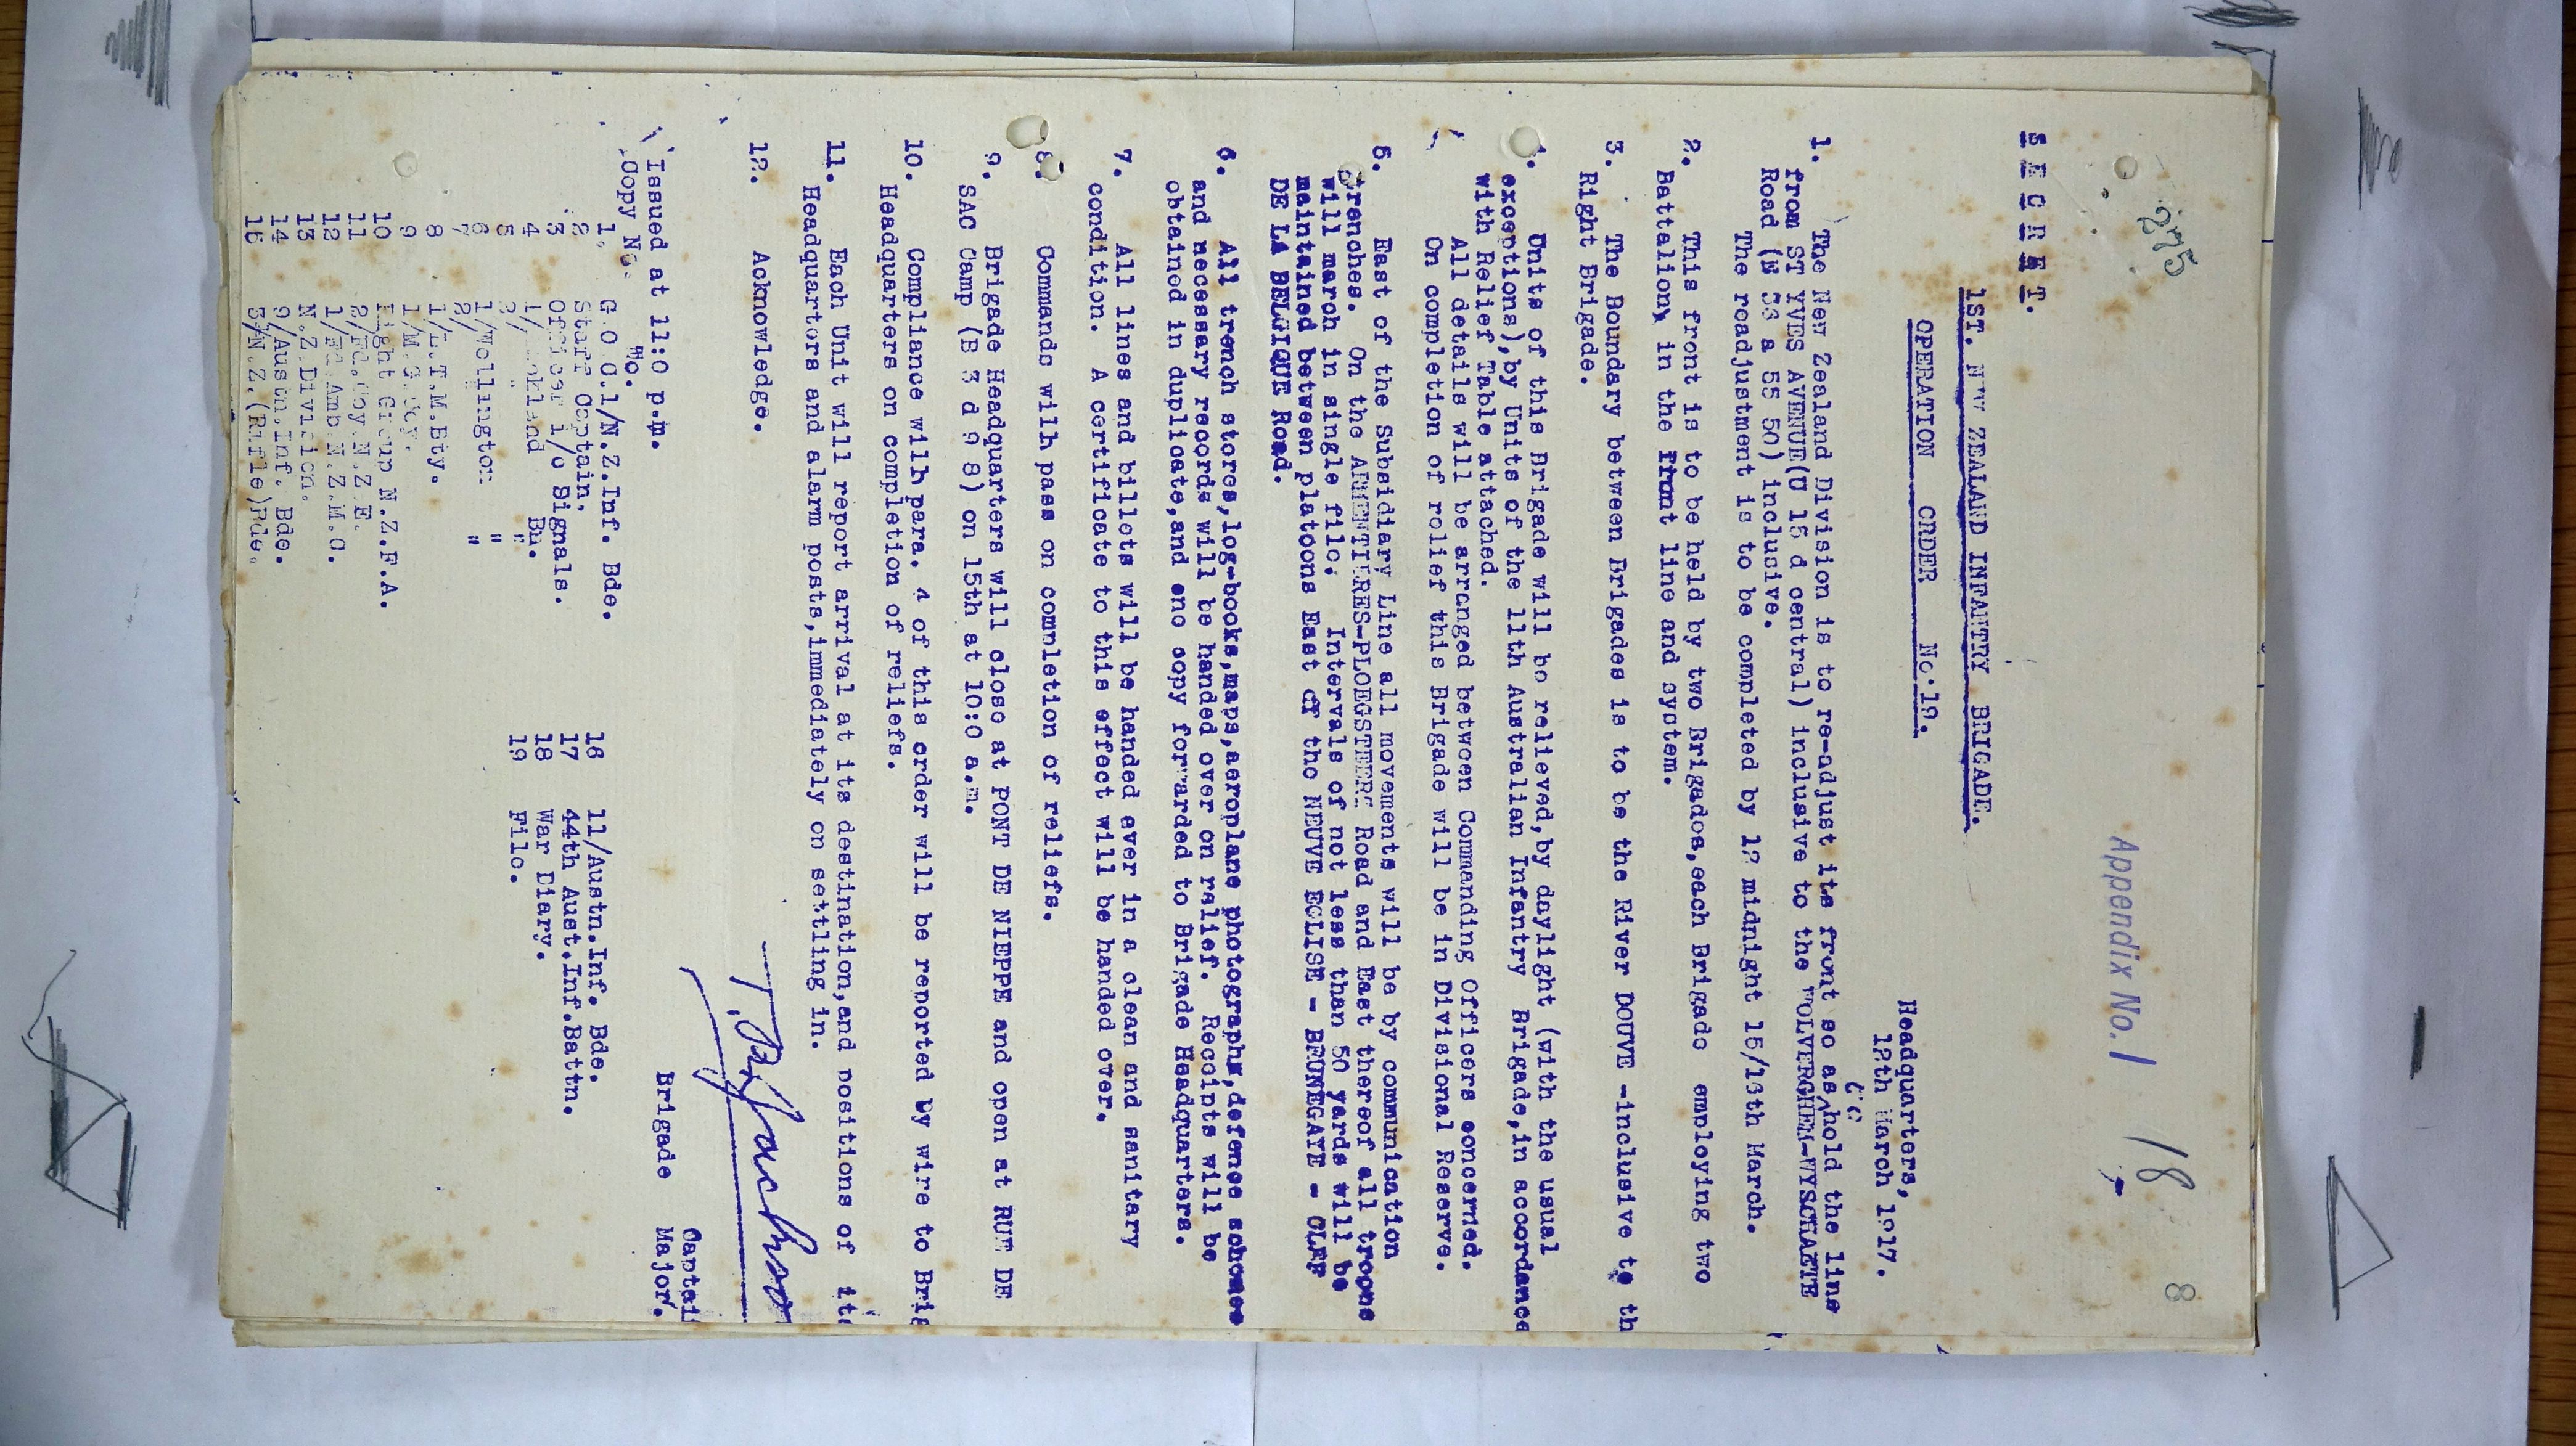 275
8
Appendix No. 1
18
SECRET.
1ST. NEW ZEALAND INFANTRY BRIGADE.
OPERATION ORDER No.19.
Headquarters,
12th March 1917.
1. The New Zealand Division is to re-adjust its front so as to hold the line
from ST YVES AVENUE(U 15 d central) inclusive to the WOLVERGHEM-WYSCHAETE
Road (N 36 a 55 50) inclusive.
The readjustment is to be completed by 12 midnight 15/16th March.
2. This front is to be held by two Brigades,each Brigade employing two
Battalions in the front line and system.
3. The Boundary between Brigades is to be the River DOUVE -inclusive to th
Right Brigade.
4. Units of this Brigade will be relieved,by daylight (with the usual
exceptions),by Units of the 11th Australian Infantry Brigade,in accordance
with Relief Table attached.
All details will be arranged between Commanding Officers concerned.
On completion of relief this Brigade will be in Divisional Reserve.
5. East of the Subsidiary Line all movements will be by communication
trenches. On the ARMENTIERES-PLOEGSTEERT Road and East thereof all troops
will march in single file. Intervals of not less than 50 yards will be
maintained between platoons East of the NEUVE EGLISE - BRUNEGAYE - CLEF
DE LA BELGIQUE Road.
6. All trench stores,log-books,maps,aeroplane photographs,defence schemes
and necessary records will be handed over on relief. Receipts will be
obtained in duplicate,and one copy forwarded to Brigade Headquarters.
7. All lines and billets will be handed over in a clean and sanitary
condition. A certificate to this effect will be handed over.
8. Commands will pass on completion of reliefs.
9. Brigade Headquarters will close at PONT DE NIEPPE and open at RUE DE
SAC Camp (B 3 d 9 8) on 15th at 10:0 a.m.
10. Compliance with para. 4 of this order will be reported by wire to Brig
Headquarters on completion of reliefs.
11. Each Unit will report arrival at its destination,and positions of its
Headquarters and alarm posts,immediately on settling in.
12. Acknowledge.
Captai
Brigade Major.
Issued at 11:0 p.m.
Copy No. To.
1. G.O.C.1/N.Z.Inf. Bde.
2 Staff Captain.
3 Officer i/c Signals.
4 1/ Auckland Bn.
5 2/ " "
6 1/Wellington "
7 2/ " "
8 1/L.T.M.Bty.
9 1/M.G.Coy.
10 Right Group N.Z.F.A.
11 2/Fd.Coy N.Z.E.
12 1/Fd.Amb N.Z.M.C.
13 N.Z.Division.
14 9/Austn.Inf. Bde.
15 3/N.Z.(Rifle)Bde.
16 11/Austn.Inf. Bde.
17 44th Aust.Inf.Battn.
18 War Diary.
19 File.